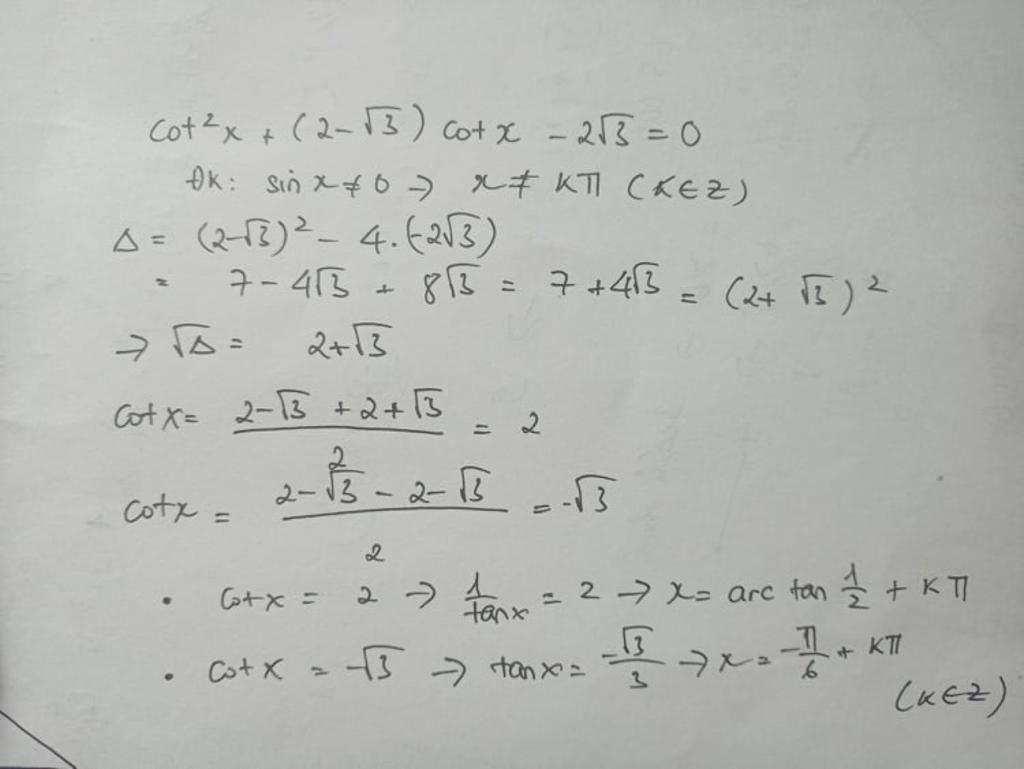 cot²x + (2-√3) cot x - 2√3 = 0
ĐK: sin x ≠ 0 → x ≠ Kπ (K∈Z)
Δ = (2-√3)² - 4.(-2√3)
= 7 - 4√3 + 8√3 = 7 + 4√3 = (2+ √3)²
→ √Δ = 2+√3
cot x = (2-√3 + 2+√3)/2 = 2
cotx = (2-√3 - 2-√3)/2 = -√3
• cotx = 2 → 1/tanx = 2 → x = arc tan 1/2 + Kπ
• cotx = -√3 → tanx = -√3/3 → x = -π/6 + Kπ
(K∈Z)